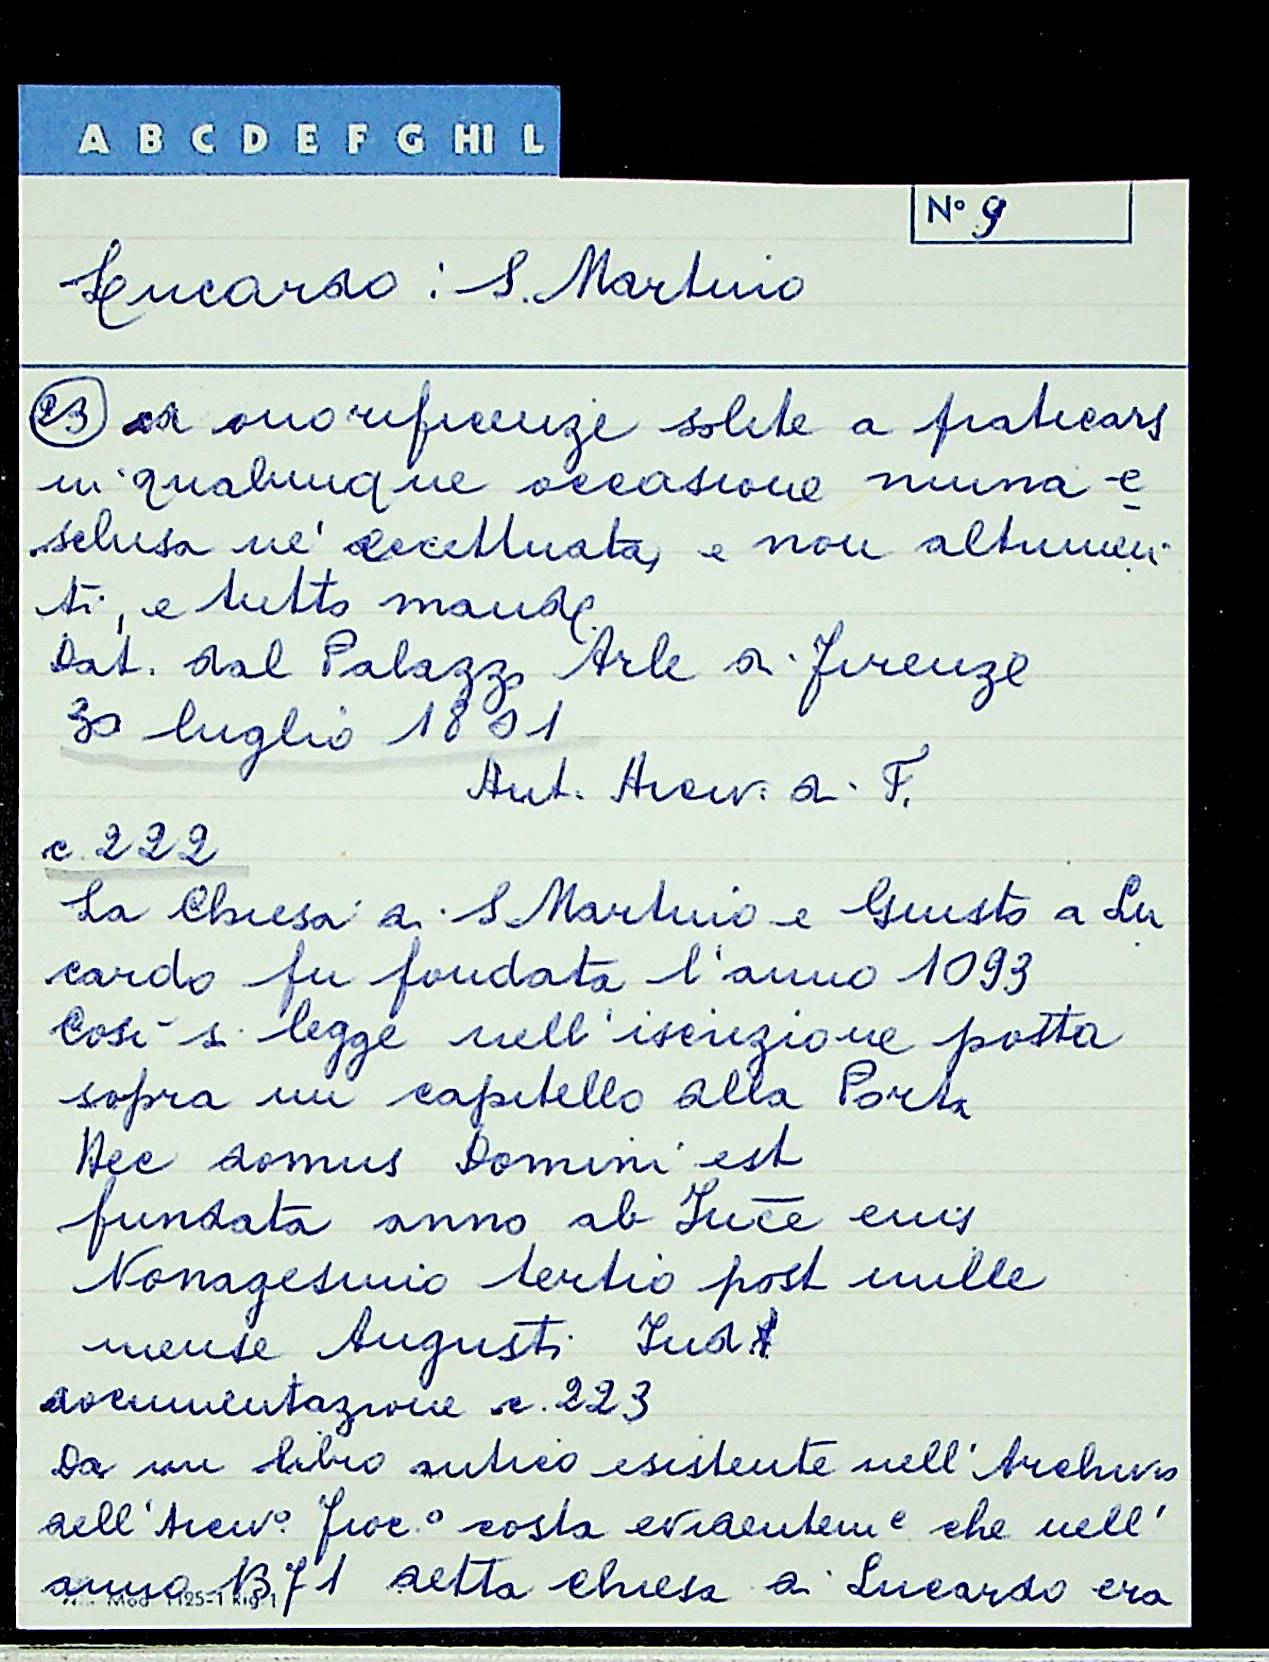 A B C D E F G HI L
N° 9
Lucardo : S. Martino
23 ed onorificenze solite a praticars
in qualunque occasione niuna e
sclusa né eccettuata, e non altrimen
ti, e tutto mand.
Dat. dal Palazzo Arle di Firenze
30 luglio 1801
Ant. Arciv. di F.
c. 222
La Chiesa di S Martino e Giusto a Lu
cardo fu fondata l'anno 1093
Così si legge nell'iscrizione posta
sopra un capitello alla Porta
Hec domus Domini est
fundata anno ab Inc̄e eius
Nonagesimo tertio post mille
mense Augusti Ind I
documentazione c. 223
Da un libro antico esistente nell'Archivio
dell'Arciv° Fioc.° costa evidentem e che nell'
anno 1371 detta chiesa di Lucardo era
Mod. 1125-1 Rig 1